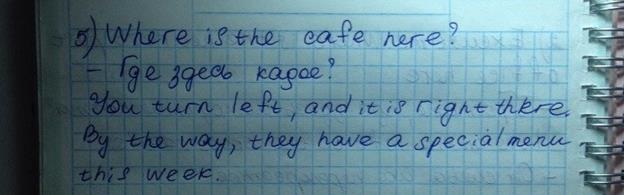 5) Where is the cafe here?
- Где здесь кафе?
You turn left, and it is right there.
By the way, they have a special menu
this week.